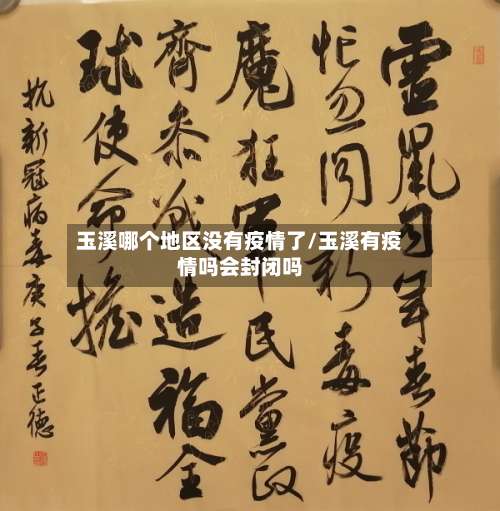 靈鼠司年春節
忽闻新毒疫
魔狂軍民黨政
齊参戰造福全
球使命擔
抗新冠病毒庚子春正德
玉溪哪个地区没有疫情了/玉溪有疫
情吗会封闭吗